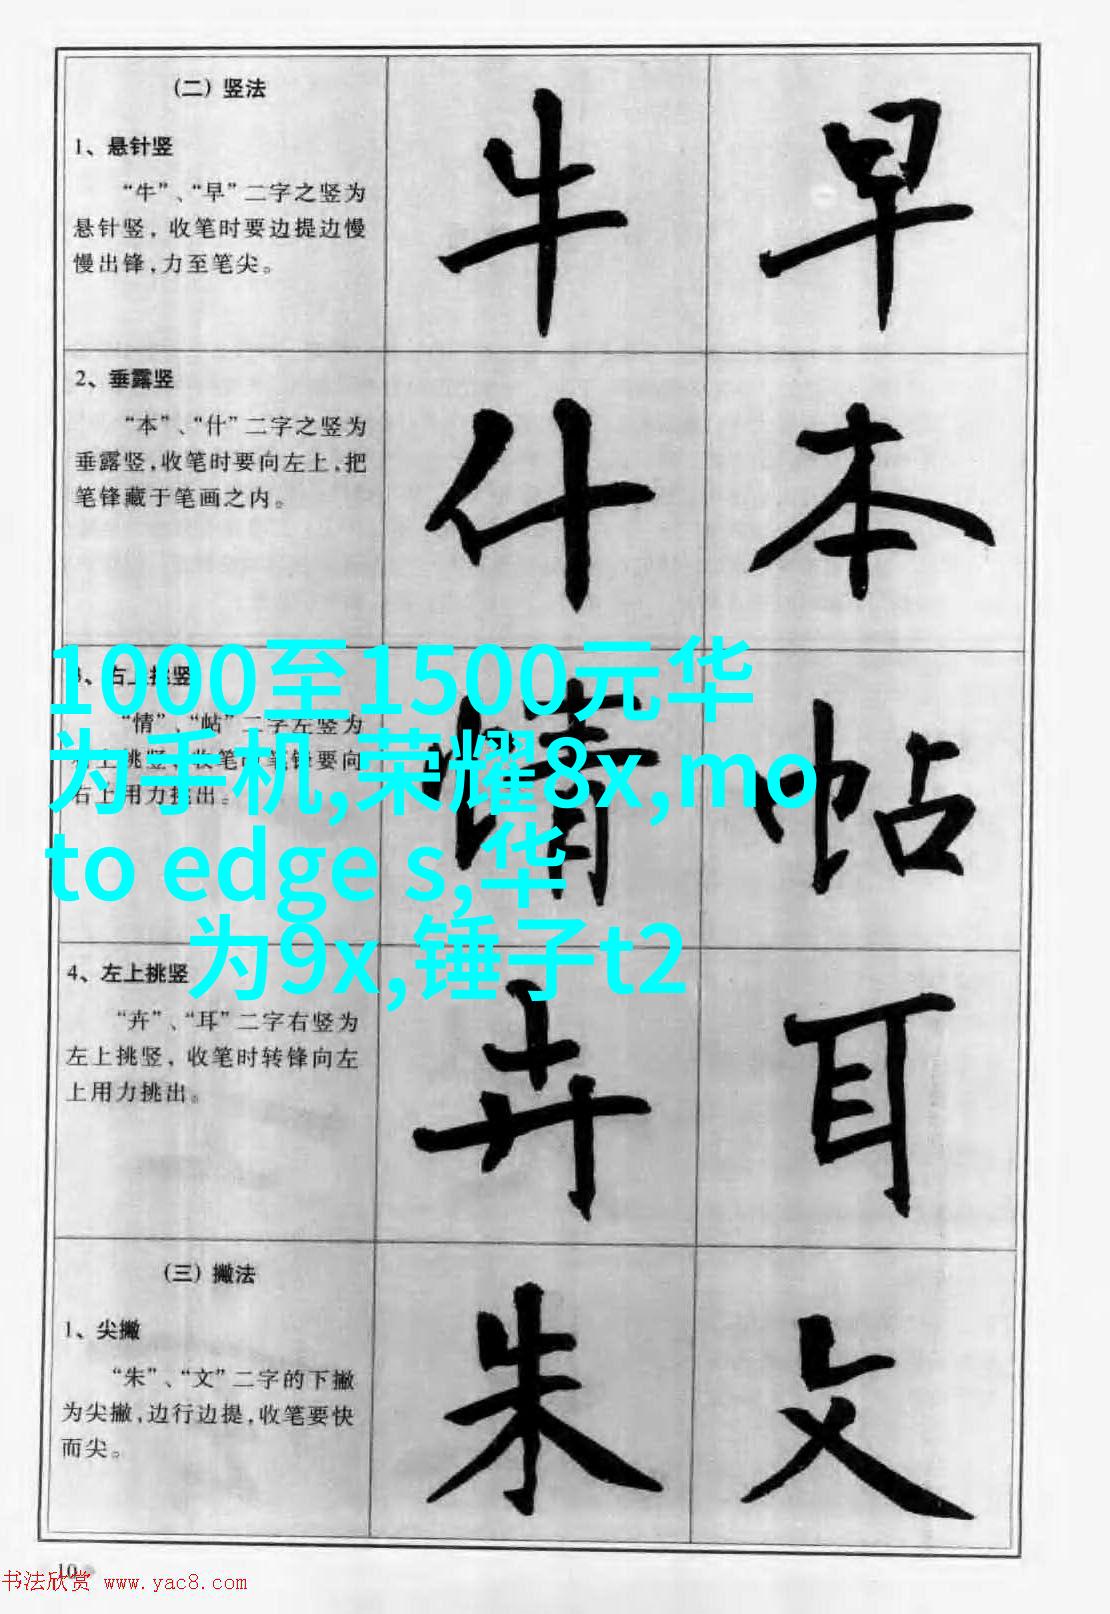 （二）竖法
1、悬针竖
“牛”、“早”二字之竖为
悬针竖，收笔时要边提边慢
慢出锋，力至笔尖。
牛 早
2、垂露竖
“本”、“什”二字之竖为
垂露竖，收笔时要向左上，把
笔锋藏于笔画之内。
什 本
1000至1500元华
为手机,荣耀8x,mo
to edge s,华
为9x,锤子t2
3、右上挑竖
“情”、“帖”二字左竖为
右上挑竖，收笔时笔锋要向
右上用力挑出。
情 帖
4、左上挑竖
“卉”、“耳”二字右竖为
左上挑竖，收笔时转锋向左
上用力挑出。
卉 耳
（三）撇法
1、尖撇
“朱”、“文”二字的下撇
为尖撇，边行边提，收笔要快
而尖。
朱 文
10
书法欣赏 www.yac8.com